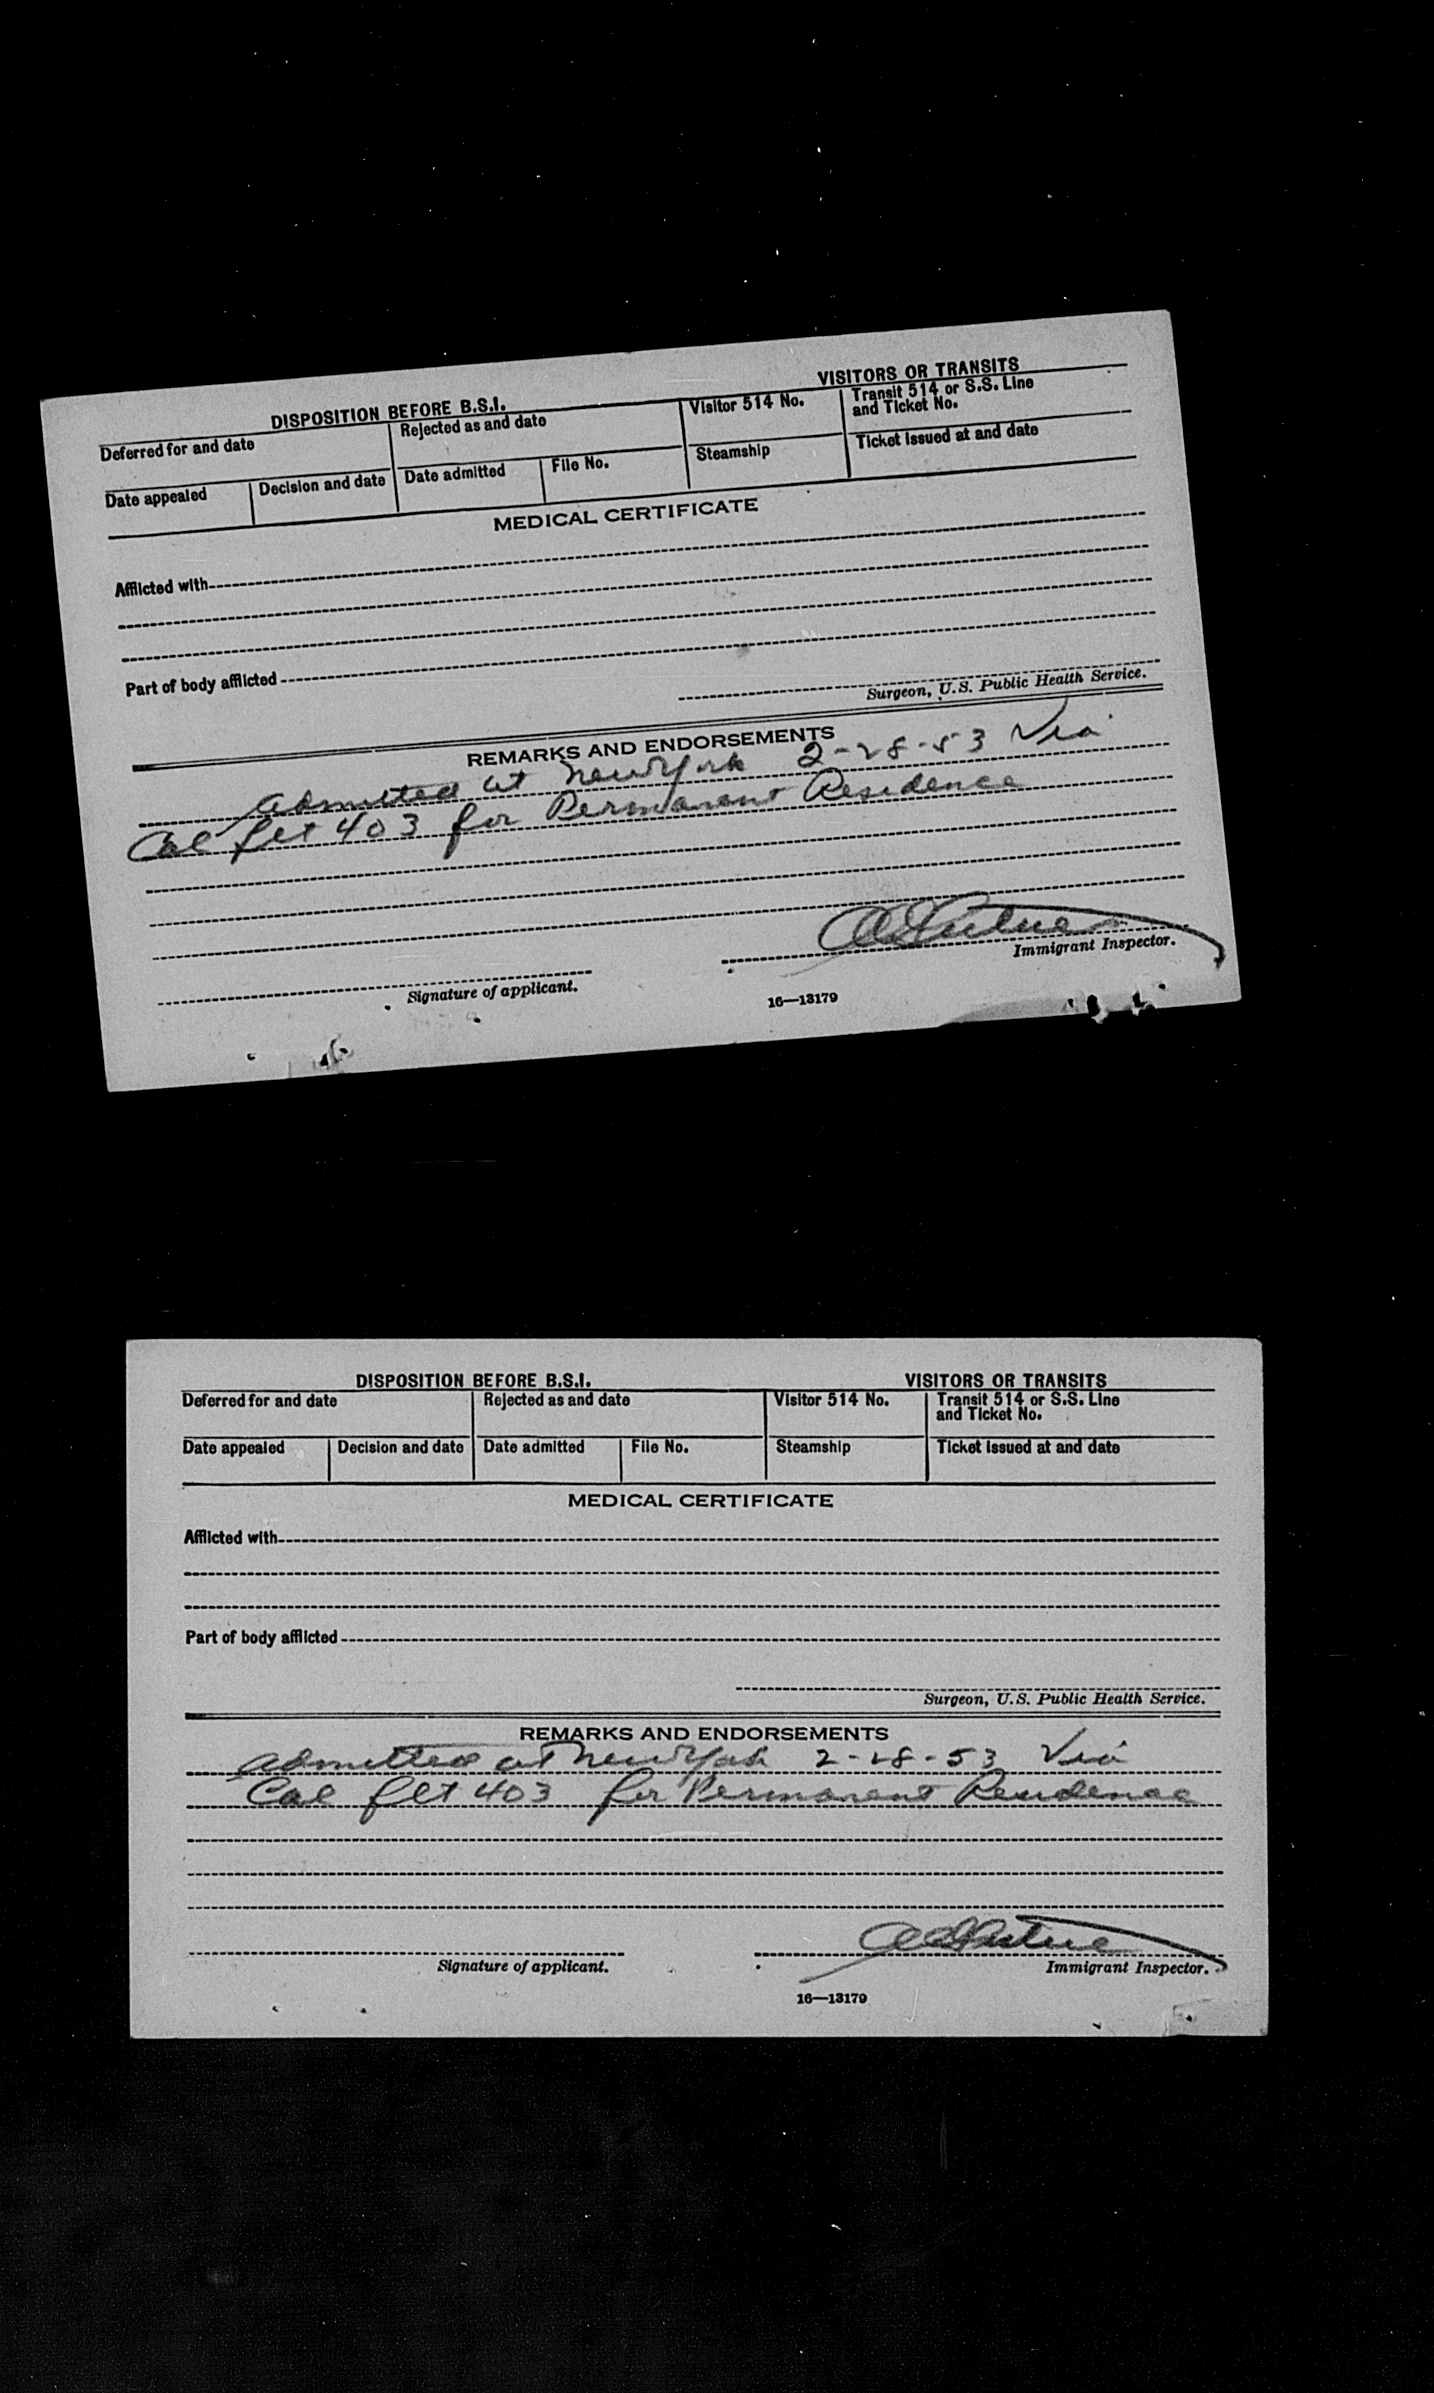 DISPOSITION BEFORE B.S.I. VISITORS OR TRANSITS
Deferred for and date Rejected as and date Visitor 514 No. Transit 514 or S.S. Line and Ticket No.
Date appealed Decision and date Date admitted File No. Steamship Ticket issued at and date
MEDICAL CERTIFICATE
Afflicted with
Part of body afflicted
Surgeon, U.S. Public Health Service.
REMARKS AND ENDORSEMENTS
Admitted at New York 2-28-53 Via
Cal flt 403 for Permanent Residence
Immigrant Inspector.
Signature of applicant.
16—13179
DISPOSITION BEFORE B.S.I. VISITORS OR TRANSITS
Deferred for and date Rejected as and date Visitor 514 No. Transit 514 or S.S. Line and Ticket No.
Date appealed Decision and date Date admitted File No. Steamship Ticket issued at and date
MEDICAL CERTIFICATE
Afflicted with
Part of body afflicted
Surgeon, U.S. Public Health Service.
REMARKS AND ENDORSEMENTS
Admitted at New York 2-28-53 Via
Cal flt 403 for Permanent Residence
Signature of applicant. Immigrant Inspector.
16—13179